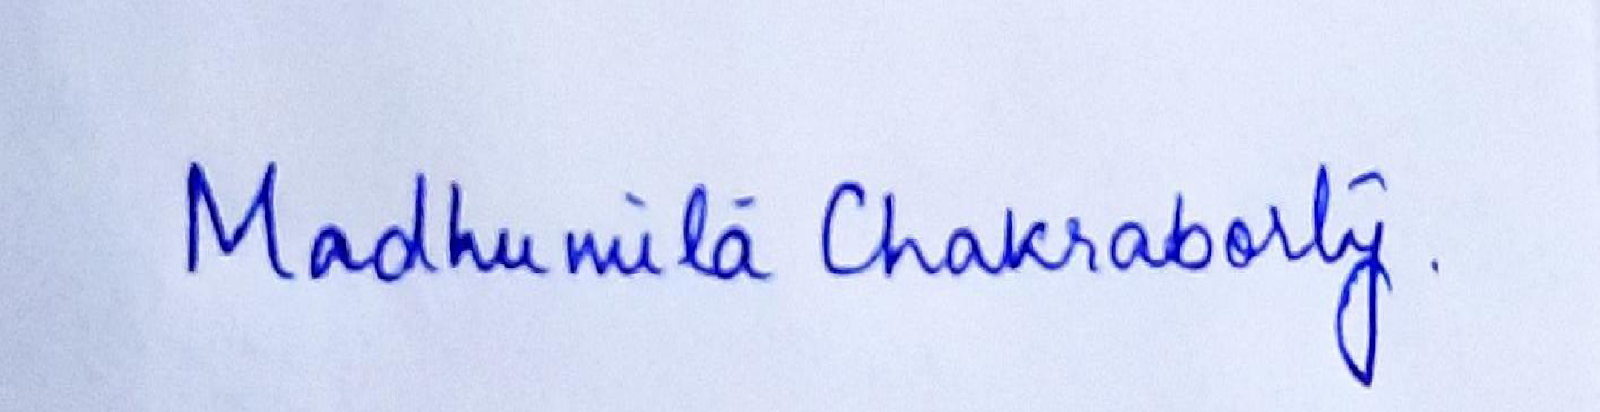 Madhumita Chakraborty.